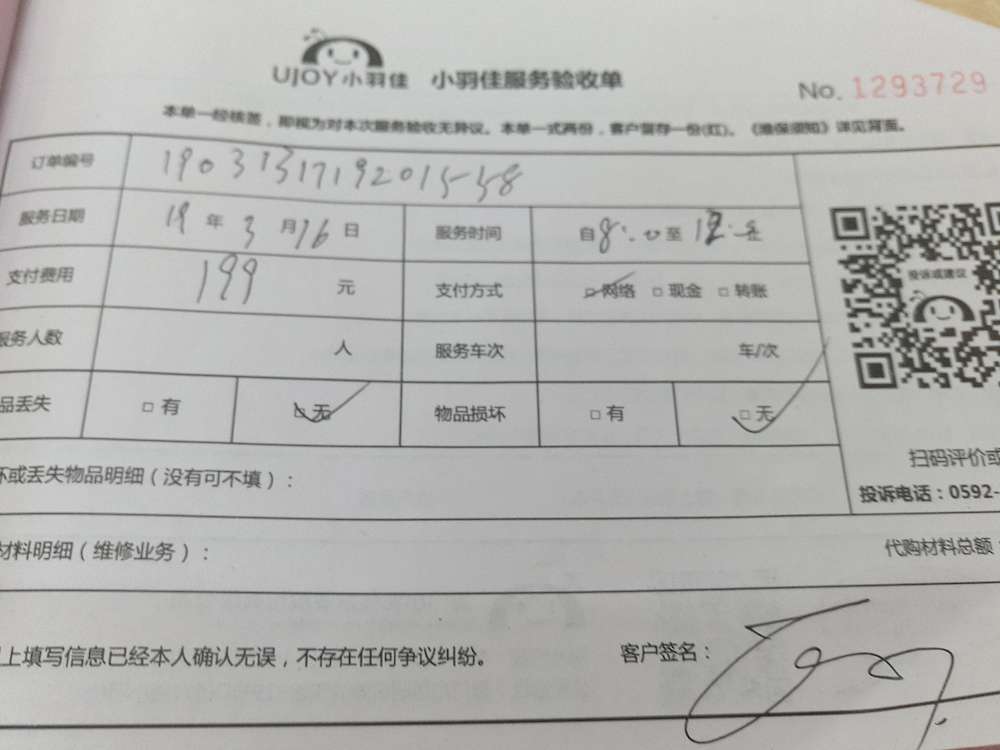 UJOY小羽佳 小羽佳服务验收单
No. 1293729
本单一经核签，即视为对本次服务验收无异议。本单一式两份，客户留存一份(红)。《维保须知》详见背面。
订单编号 19031317192015-58
服务日期 19 年 3 月 16 日 服务时间 自 8:00 至 12:
支付费用 199 元 支付方式 □网络 □现金 □转账
服务人数 人 服务车次 车/次
品丢失 □有 □无 物品损坏 □有 □无
投诉或建议
扫码评价或
投诉电话：0592-
坏或丢失物品明细（没有可不填）：
材料明细（维修业务）： 代购材料总额：
上填写信息已经本人确认无误，不存在任何争议纠纷。 客户签名：